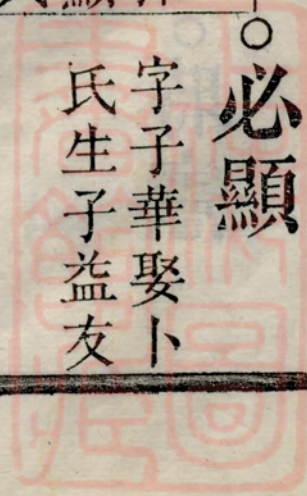 ○必顯
字子華娶卜
氏生子益友